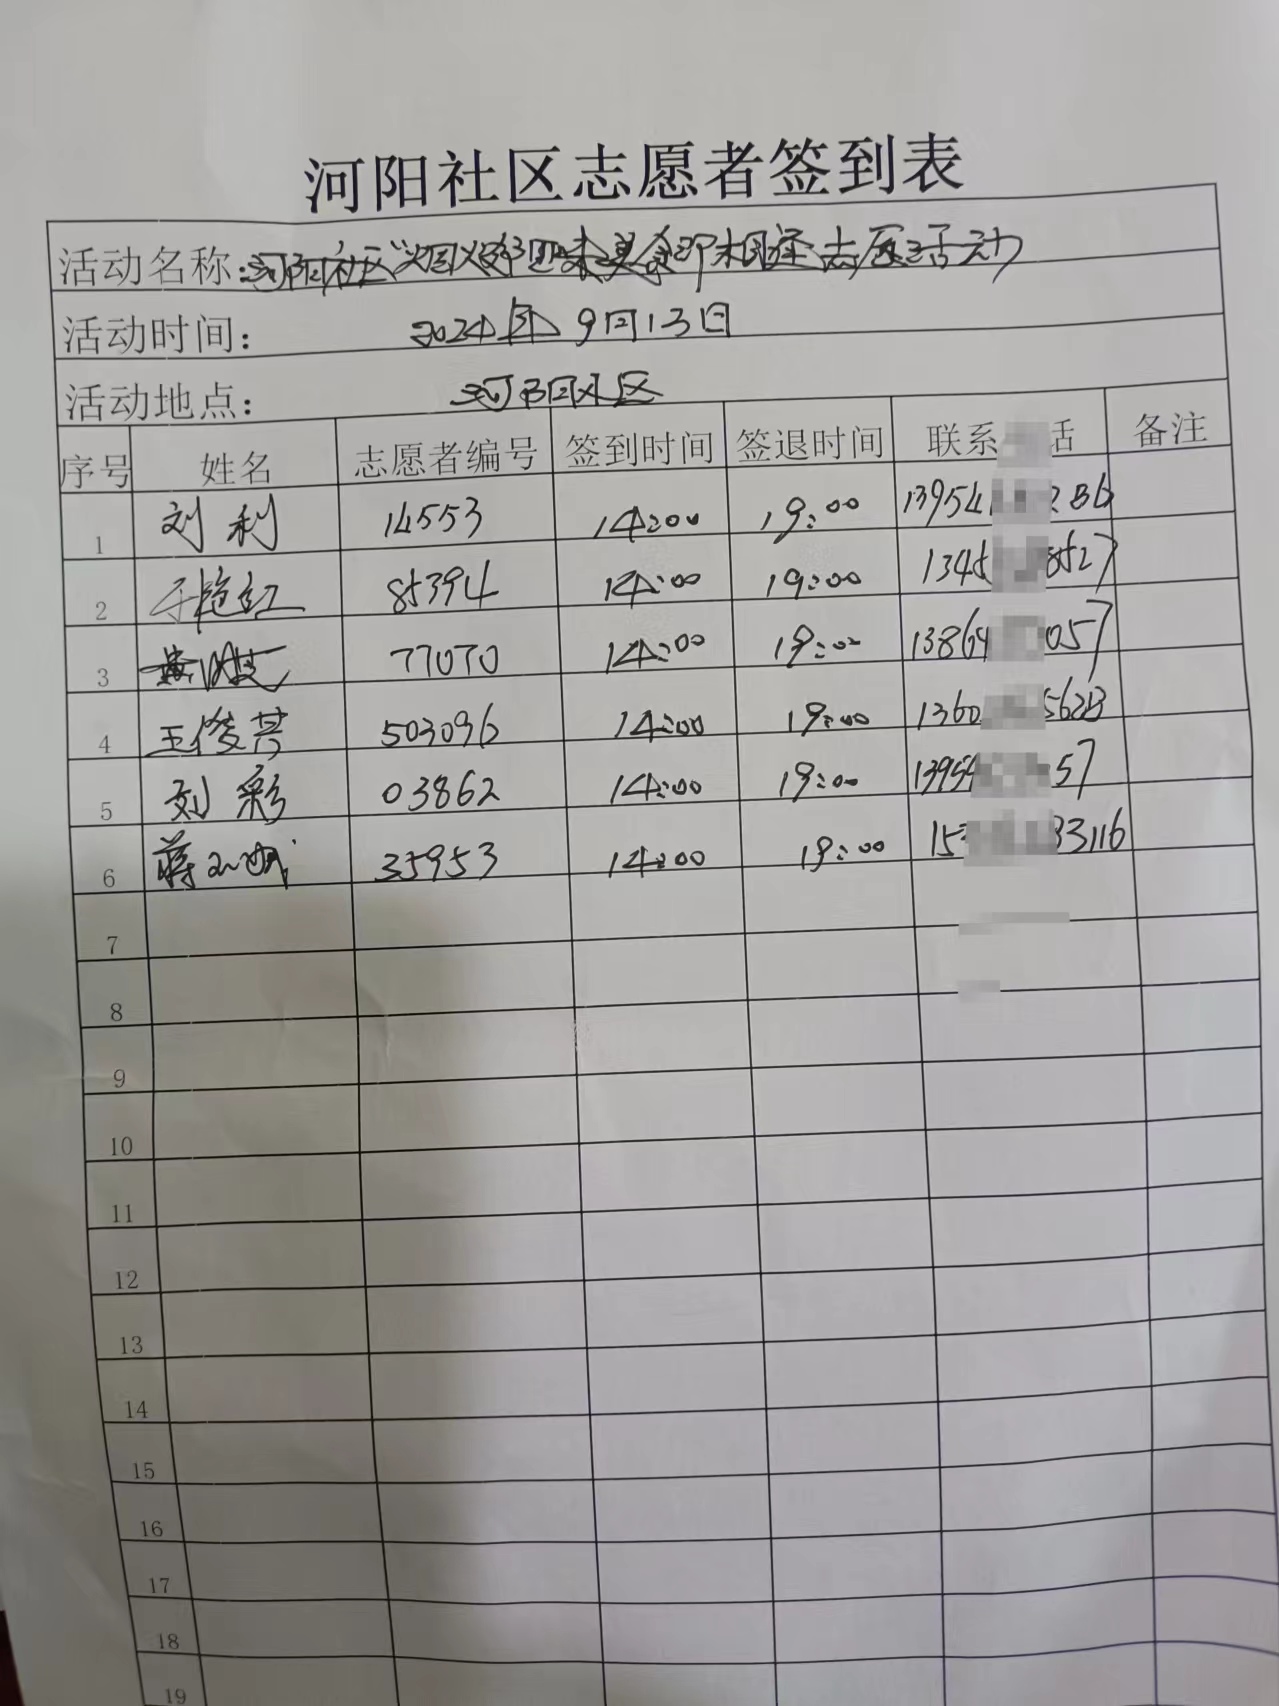 河阳社区志愿者签到表
活动名称:河阳社区"烟火邻里味美食邻相逢志愿活动
活动时间: 2024年9月13日
活动地点: 河阳社区
序号 姓名 志愿者编号 签到时间 签退时间 联系 话 备注
1 刘利 14553 14:00 19:00 13954 286
2 于艳红 85394 14:00 19:00 1345 8527
3 77070 14:00 19:00 13864 057
4 王俊芹 503096 14:00 19:00 1360 5628
5 刘彩 03862 14:00 19:00 13954 57
6 蒋 35953 14:00 19:00 15 33116
7
8
9
10
11
12
13
14
15
16
17
18
19